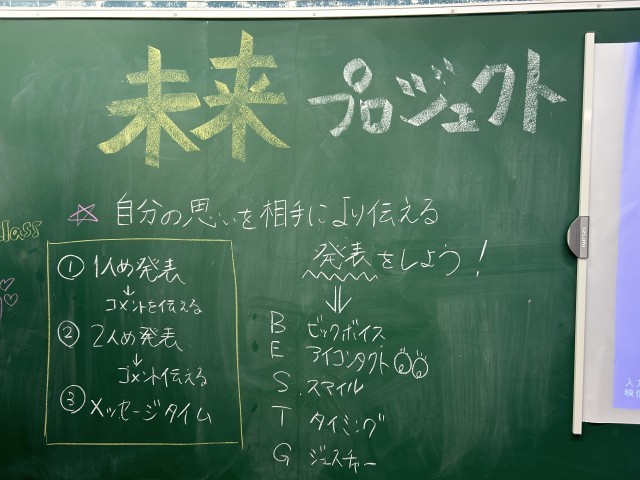 未来プロジェクト
lass
☆ 自分の思いを相手により伝える
発表をしよう!
① 1人め発表
↓
コメントを伝える
② 2人め発表
↓
コメント伝える
③ メッセージタイム
⇓
B ビックボイス
E アイコンタクト
S スマイル
T タイミング
G ジェスチャー
入力
映像